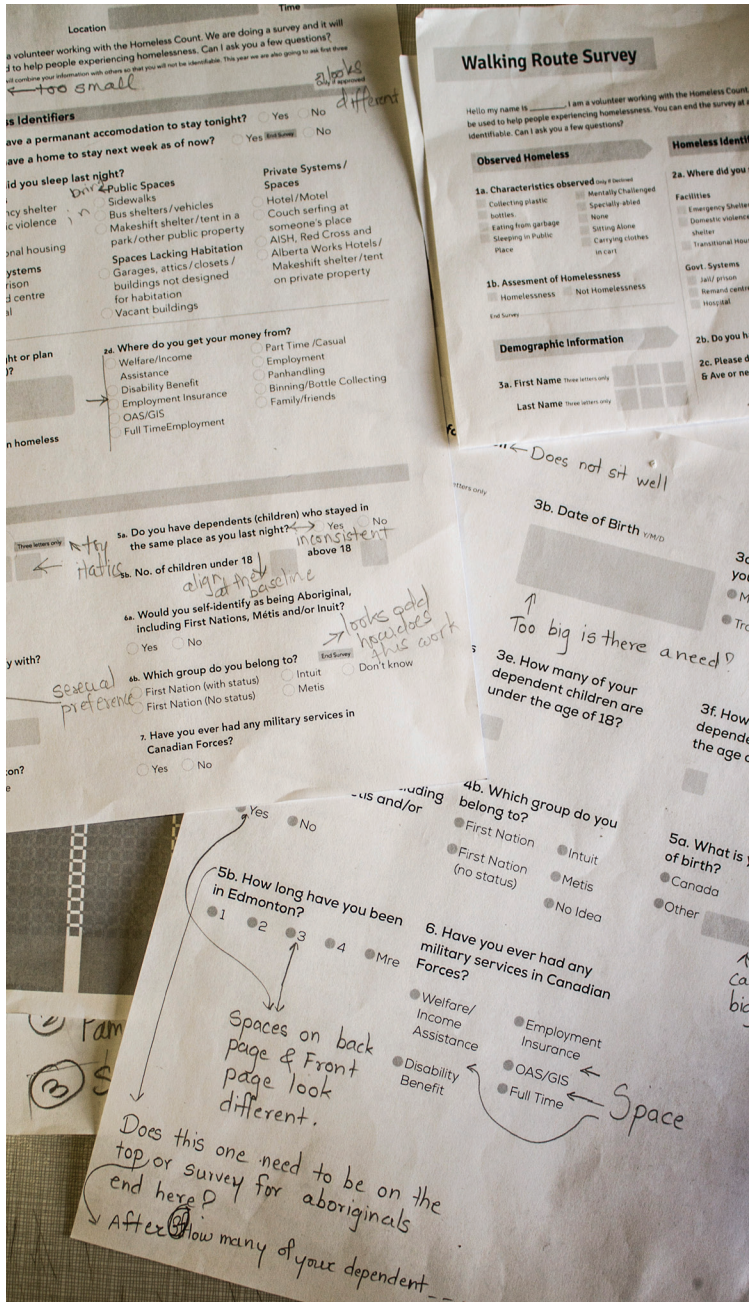 Location
Time
a volunteer working with the Homeless Count. We are doing a survey and it will
d to help people experiencing homelessness. Can I ask you a few questions?
will combine your information with others so that you will not be identifiable. This year we are also going to ask first three
←too small
looks
different
ss Identifiers
ave a permanant accomodation to stay tonight?
Yes
No
ave a home to stay next week as of now?
Yes
End Survey
No
id you sleep last night?
ncy shelter
ic violence
onal housing
ystems
rison
d centre
al
bring
in
Public Spaces
Sidewalks
Bus shelters/vehicles
Makeshift shelter/tent in a
park/other public property
Spaces Lacking Habitation
Garages, attics/closets/
buildings not designed
for habitation
Vacant buildings
Private Systems/
Spaces
Hotel/Motel
Couch serfing at
someone's place
AISH, Red Cross and
Alberta Works Hotels/
Makeshift shelter/tent
on private property
ht or plan
)?
n homeless
2d. Where do you get your money from?
Welfare/Income
Assistance
Disability Benefit
Employment Insurance
OAS/GIS
Full TimeEmployment
Part Time /Casual
Employment
Panhandling
Binning/Bottle Collecting
Family/friends
Three letters only
try
Itatics
5a. Do you have dependents (children) who stayed in
the same place as you last night?
Yes
No
inconsistent
5b. No. of children under 18
above 18
align
at the
baseline
6a. Would you self-identify as being Aboriginal,
including First Nations, Métis and/or Inuit?
Yes
No
looks odd
how does
this work
y with?
sexecual
preference
6b. Which group do you belong to?
End Survey
First Nation (with status)
First Nation (No status)
Intuit
Metis
Don't know
7. Have you ever had any military services in
Canadian Forces?
Yes
No
ton?
e
Walking Route Survey
Hello my name is ________, I am a volunteer working with the Homeless Count.
be used to help people experiencing homelessness. You can end the survey at
identifiable. Can I ask you a few questions?
Observed Homeless
1a. Characteristics observed Only if Declined
Collecting plastic
bottles.
Eating from garbage
Sleeping in Public
Place
Mentally Challenged
Specially-abled
None
Sitting Alone
Carrying clothes
in cart
1b. Assesment of Homelessness
Homelessness
Not Homelessness
End Survey
Demographic Information
3a. First Name Three letters only
Last Name Three letters only
Homeless Identif
2a. Where did you
Facilities
Emergency Shelte
Domestic violenc
shelter
Transitional Hou
Govt. Systems
Jail/ prison
Remand centre
Hospital
2b. Do you h
2c. Please d
& Ave or ne
← Does not sit well
etters only
3b. Date of Birth Y/M/D
Too big is there a need?
3c
you
M
Tra
3e. How many of your
dependent children are
under the age of 18?
3f. How
depende
the age o
uding
tis and/or
Yes
No
4b. Which group do you
belong to?
First Nation
First Nation
(no status)
Intuit
Metis
No Idea
5a. What is y
of birth?
Canada
Other
ca
big
5b. How long have you been
in Edmonton?
1
2
3
4
Mre
6. Have you ever had any
military services in Canadian
Forces?
Welfare/
Income
Assistance
Disability
Benefit
Employment
Insurance
OAS/GIS
Full Time
Space
Spaces on back
page & Front
page look
different.
Does this one need to be on the
top, or survey for aboriginals
end here?
After 3f How many of your dependent _ _
2 Fam
3 S